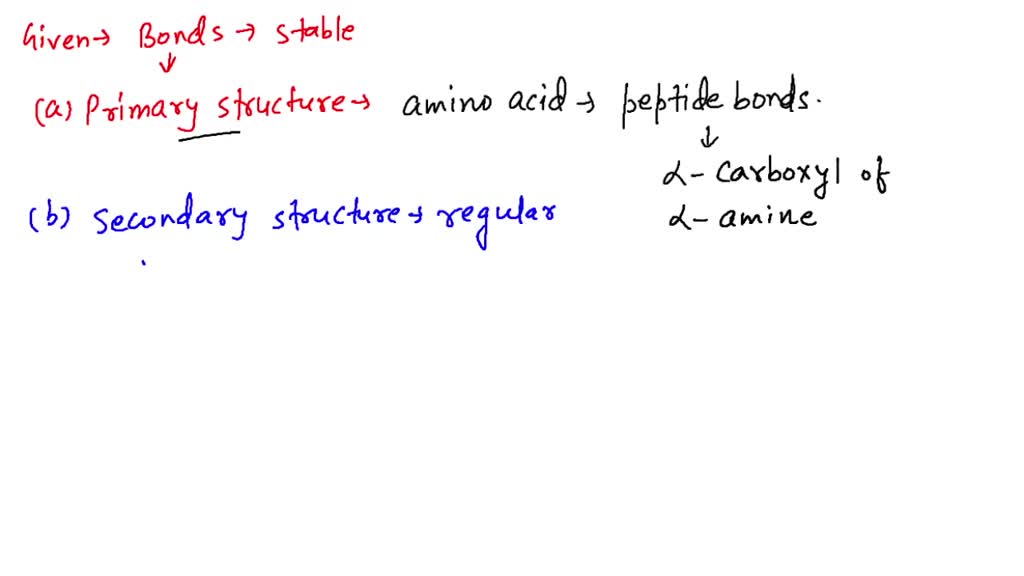 Given → Bonds → stable
↓
(a) Primary structure → amino acid → peptide bonds.
↓
α - carboxyl of
α - amine
(b) secondary structure → regular